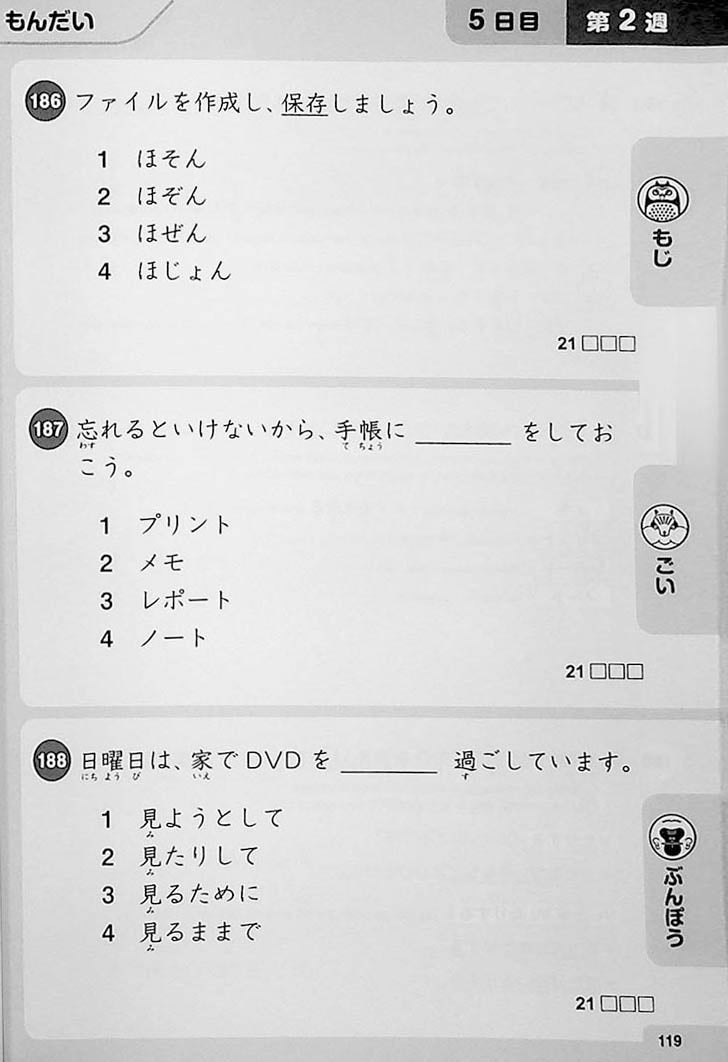 もんだい
5日目
第2週
186 ファイルを作成し、保存しましょう。
1 ほそん
2 ほぞん
3 ほぜん
4 ほじょん
もじ
21 □□□
187 忘れるといけないから、手帳に ________ をしてお
わす て ちょう
こう。
1 プリント
2 メモ
3 レポート
4 ノート
ごい
21 □□□
188 日曜日は、家でDVDを ________ 過ごしています。
にち よう び いえ す
1 見ようとして
み
2 見たりして
み
3 見るために
み
4 見るままで
み
ぶんぽう
21 □□□
119